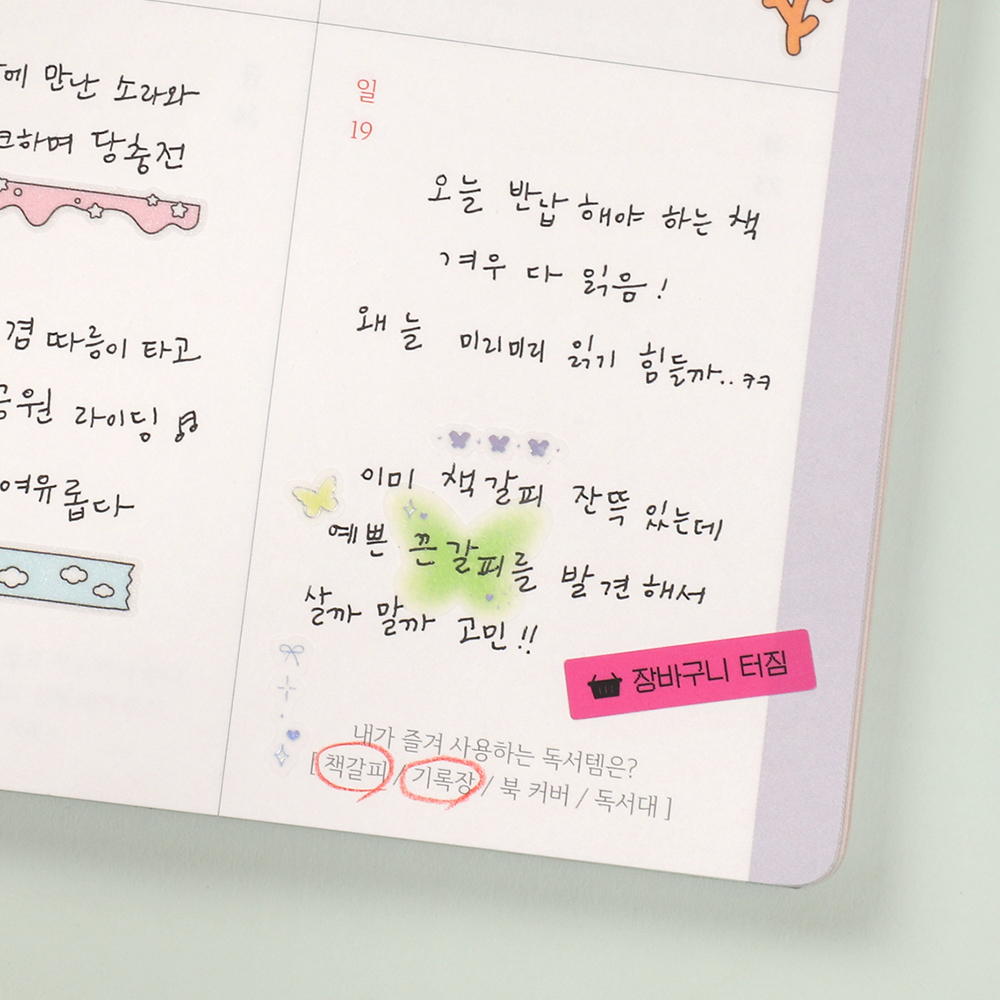 에 만난 소라와
하며 당충전
겸 따릉이 타고
공원 라이딩
여유롭다
일
19
오늘 반납해야 하는 책
겨우 다 읽음!
왜 늘 미리미리 읽기 힘들까.. ㅋㅋ
이미 책갈피 잔뜩 있는데
예쁜 끈갈피를 발견해서
살까 말까 고민!!
장바구니 터짐
내가 즐겨 사용하는 독서템은?
[ 책갈피 / 기록장 / 북 커버 / 독서대 ]